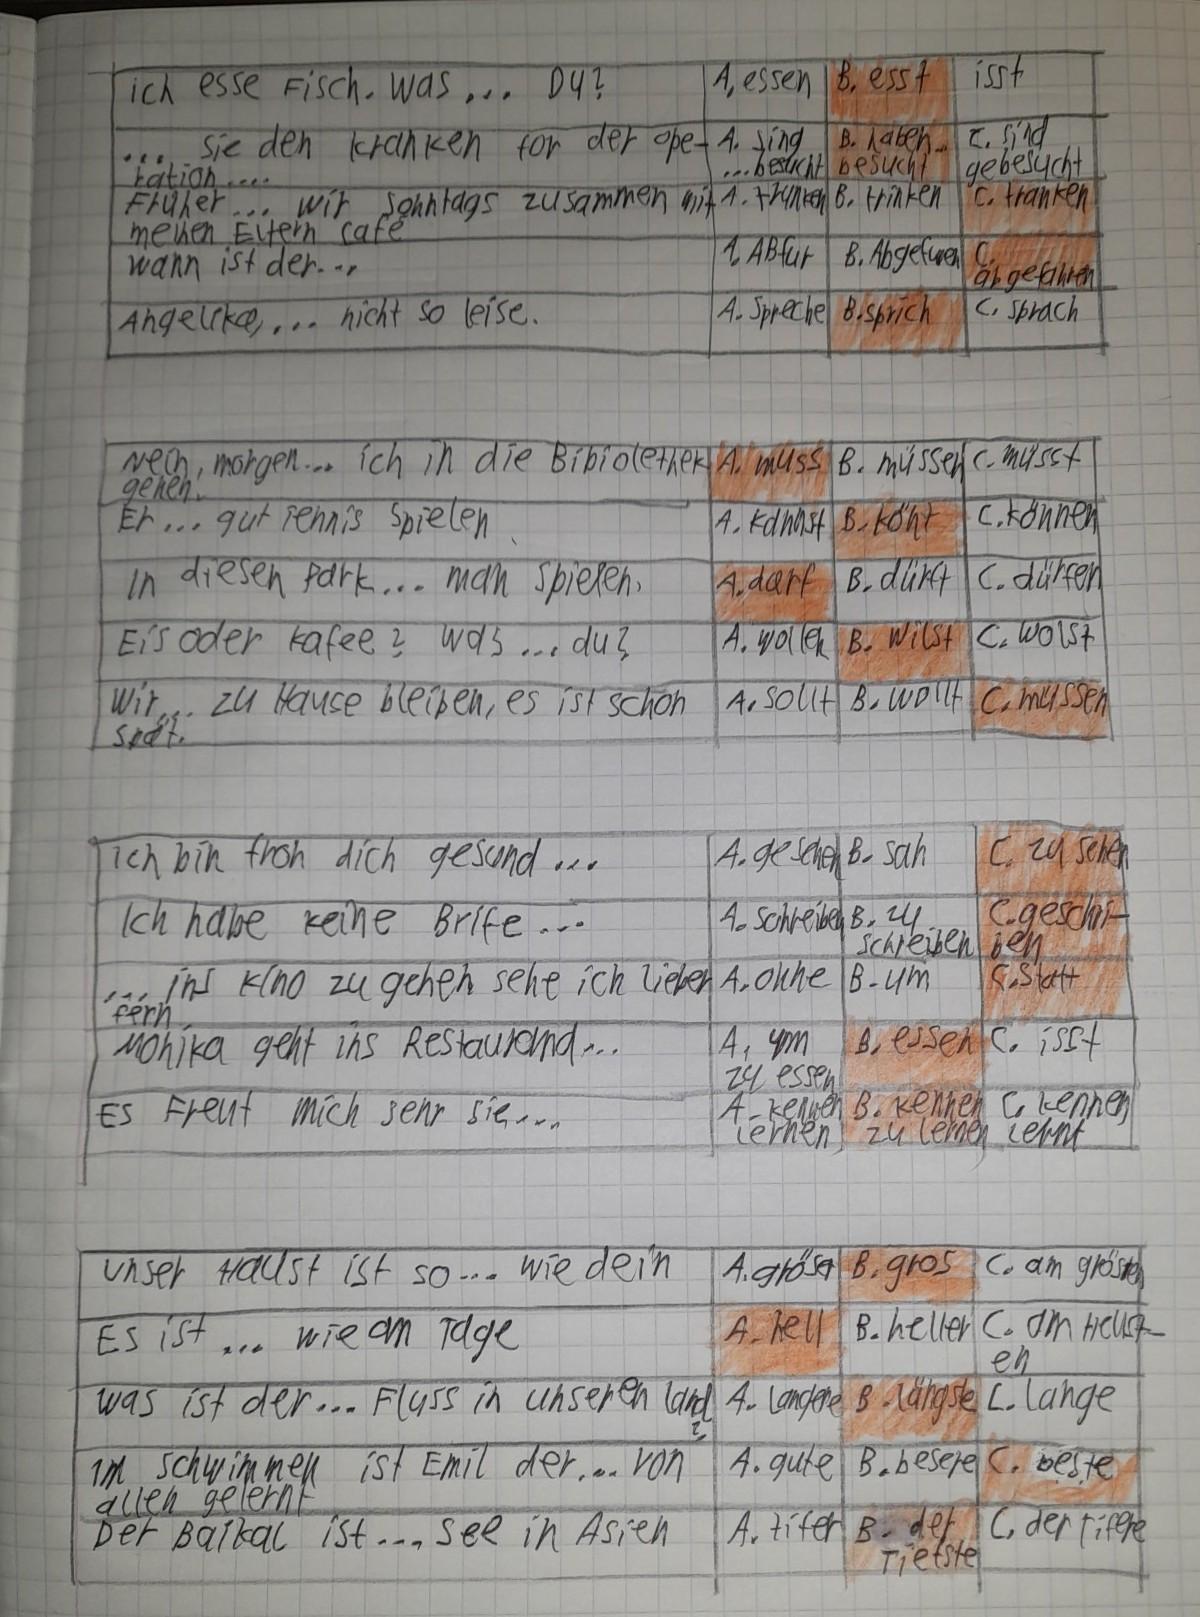 ich esse Fisch. was ... Du? A. essen B. esst isst
... sie den kranken for der ope- A. sing B. haben... C. sind
ration.... ...besucht besucht gebesucht
Früher ... wir sonntags zusammen mit A. trunken B. trinken C. tranken
meinen Eltern cafe
wann ist der... A. ABfur B. Abgefuren C.
abgefahren
Angelika, ... nicht so leise. A. spreche B. sprich C. sprach
Nein, morgen... ich in die Bibiolethek A. muss B. müssen C. müsst
gehen.
Er ... gut Tennis spielen A. kannst B. könt C. können
In diesen Park... man spielen. A. darf B. dürft C. dürfen
Eis oder kafee? was ... du? A. wollen B. wilst C. wolst
Wir ... zu Hause bleiben, es ist schon A. sollt B. wollt C. mussen
spät.
ich bin froh dich gesund ... A. gesehen B. sah C. zu sehen
Ich habe keine Brife ... A. schreiben B. zu C. geschri-
schreiben ben
... ins kino zu gehen sehe ich lieber A. ohne B. um C. statt
fern
Monika geht ins Restaurand... A. um B. essen C. isst
zu essen
Es Freut mich sehr sie.... A. kennen B. kennen C. kennen
lernen zu lernen lernt
unser Haust ist so ... wie dein A. gröser B. gros C. am grösten
Es ist ... wie am Tage A. hell B. heller C. am Hellst-
en
was ist der ... Fluss in unseren land A. langere B. längste C. lange
?
im schwimmen ist Emil der ... von A. gute B. besere C. beste
allen gelernt
Der Baikal ist ... see in Asien A. tifer B. der C. der tifere
Tiefste